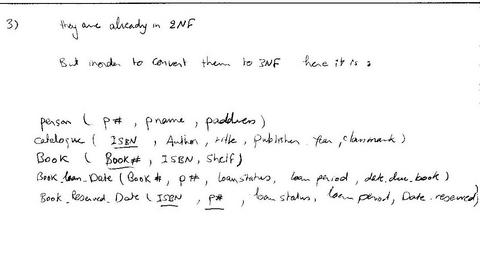 3) they are already in 2NF
But inorder to convert them to 3NF here it is :
person ( p# , pname , paddress )
catalogue ( ISBN , Author , title , publisher . Year , classmark )
Book ( Book# , ISBN , Shelf )
Book_loan_Date ( Book # , p# , loanstatus , loan period , date_due_book )
Book_Reserved_Date ( ISBN , p# , loan status , loan period , Date_reserved )